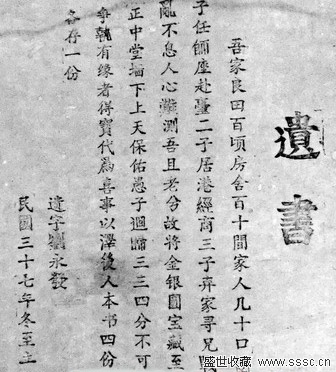 遺書
吾家良田百頃房舍百十間家人几十口
子任師座赴臺二子居港經商三子弃家尋兄
亂不息人心難測吾且老兮故將金银圓宝藏至
正中堂墙下上天保佑愚子迴歸三三四分不可
爭執有缘者得寶代為喜事以澤後人本书四份
各存一份
遺字劉永發
民國三十七年冬至
盛世收藏 www.sssc.cn